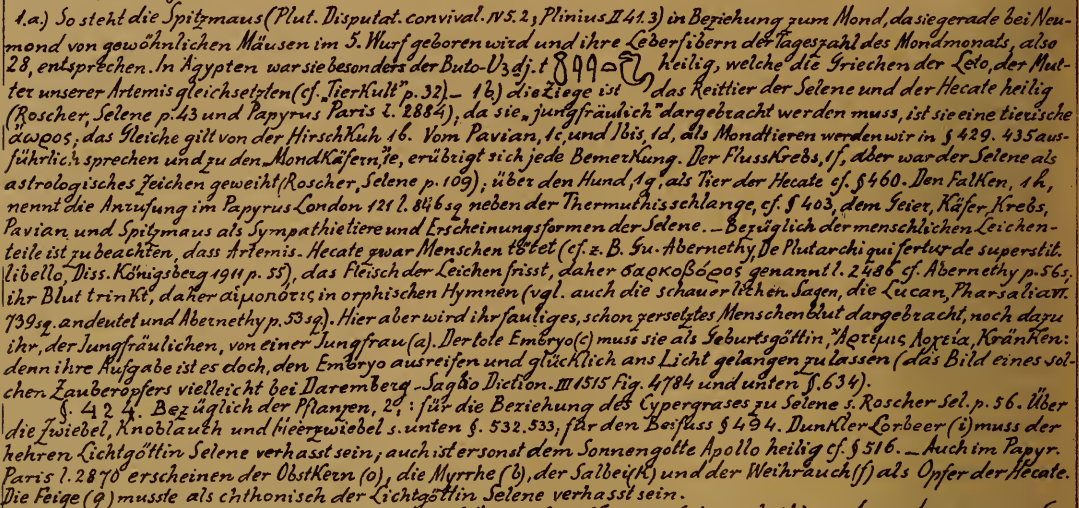 1.a.) So steht die Spitzmaus (Plut. Disputat. convival. IV 5. 2; Plinius II 41. 3) in Beziehung zum Mond, da sie gerade bei Neu-
mond von gewöhnlichen Mäusen im 5. Wurf geboren wird und ihre Leberfibern der Tageszahl des Mondmonats, also
28, entsprechen. In Ägypten war sie besonders der Buto-Uзdj.t heilig, welche die Griechen der Leto, der Mut-
ter unserer Artemis gleichsetzten (cf. „TierKult" p. 32) – 1b) die Ziege ist das Reittier der Selene und der Hecate heilig
(Roscher, Selene p. 43 und Papyrus Paris l. 2884), da sie „jungfräulich" dargebracht werden muss, ist sie eine tierische
ἄωρος; das Gleiche gilt von der HirschKuh 1b. Vom Pavian, 1c, und Ibis, 1d, als Mondtieren werden wir in § 429. 435 aus-
führlich sprechen und zu den „MondKäfern", 1e, erübrigt sich jede BemerKung. Der FlussKrebs, 1f, aber war der Selene als
astrologisches Zeichen geweiht (Roscher, Selene p. 109); über den Hund, 1g, als Tier der Hecate cf. § 460. Den FalKen, 1h,
nennt die Anrufung im Papyrus London 121 l. 846 sq neben der Thermuthisschlange, cf. § 403, dem Geier, Käfer, Krebs,
Pavian und Spitzmaus als Sympathietiere und Erscheinungsformen der Selene. – Bezüglich der menschlichen Leichen-
teile ist zu beachten, dass Artemis-Hecate zwar Menschen tötet (cf. z. B. Gu. Abernethy, De Plutarchi qui fertur de superstit.
libello, Diss. Königsberg 1911 p. 55), das Fleisch der Leichen frisst, daher σαρκοβόρος genannt l. 2486 cf. Abernethy p. 56 s;
ihr Blut trinKt, daher αἱμοπότις in orphischen Hymnen (vgl. auch die schauerlichen Sagen, die Lucan, Pharsalia VI.
739 sq. andeutet und Abernethy p. 53 sq). Hier aber wird ihr fauliges, schon zersetztes Menschenblut dargebracht, noch dazu
ihr, der Jungfräulichen, von einer Jungfrau (a). Der tote Embryo (c) muss sie als Geburtsgöttin, Ἄρτεμις Λοχεία, KränKen:
denn ihre Aufgabe ist es doch, den Embryo ausreifen und glücklich ans Licht gelangen zu lassen (das Bild eines sol-
chen Zauberopfers vielleicht bei Daremberg-Saglio Diction. III 1515 Fig. 4784 und unten §. 634).
§. 424. Bezüglich der Pflanzen, 2,: für die Beziehung des Cypergrases zu Selene s. Roscher Sel. p. 56. Über
die Zwiebel, Knoblauch und Meerzwiebel s. unten §. 532. 533; für den Beifuss § 494. Dunkler Lorbeer (i) muss der
hehren Lichtgöttin Selene verhasst sein; auch ist er sonst dem Sonnengotte Apollo heilig cf. § 516. – Auch im Papyr.
Paris l. 2870 erscheinen der ObstKern (o), die Myrrhe (b), der Salbei (K) und der Weihrauch (f) als Opfer der Hecate.
Die Feige (g) musste als chthonisch der Lichtgöttin Selene verhasst sein.